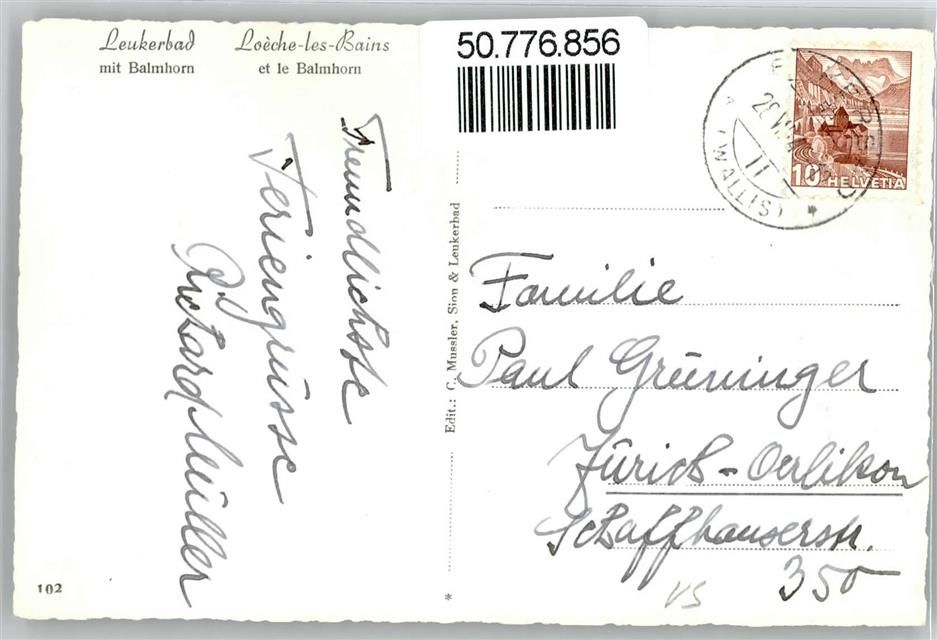 Leukerbad
mit Balmhorn
Loèche-les-Bains
et le Balmhorn
50.776.856
10 HELVETIA
(WALLIS)
11
Freundlichste
Feriengrüsse
Edit.: C. Mussler, Sion & Leukerbad
Familie
Paul Grüninger
Zürich-Oerlikon
Schaffhauserstr.
350
VS
102
*